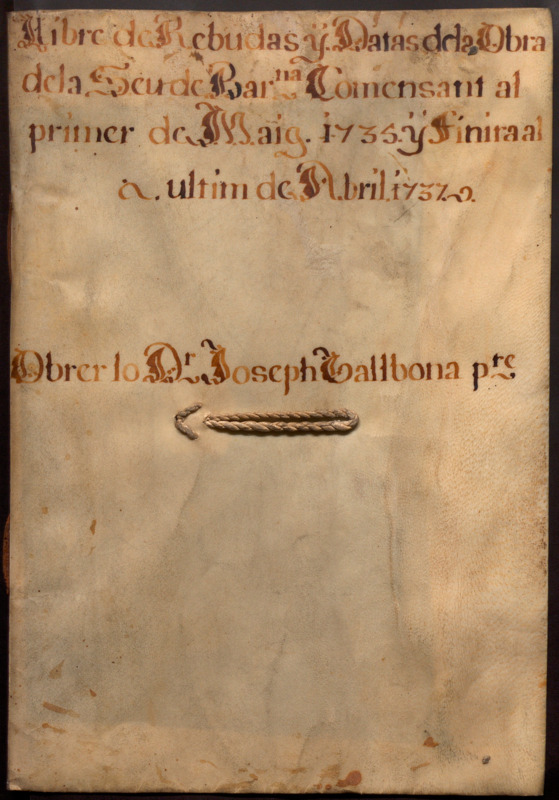 Llibre de Rebudas ÿ Datas dela Obra
dela Seu de Bar.na Comensant al
primer de Maig. 1735. ÿ Finira al
ultim de Abril. 1737.
Obrer lo Dr. Joseph Vallbona pre.